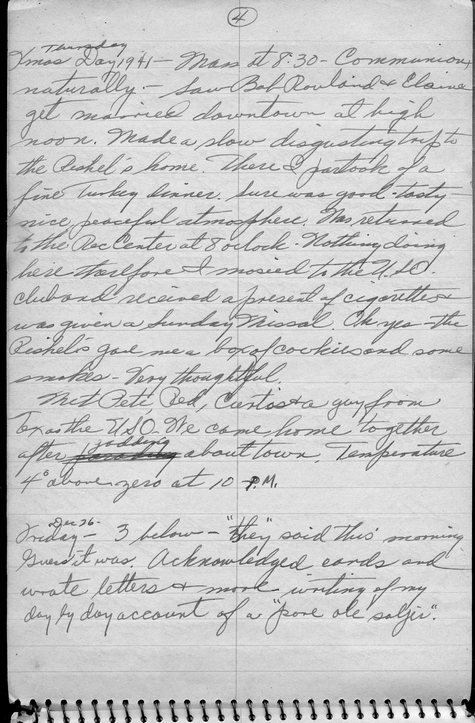 4
Thursday
Xmas Day, 1941 - Mass at 8:30 - Communion,
naturally. - Saw Bob Rowland & Elaine
get married downtown at high
noon. Made a slow disgusting trip to
the Peshel's home. There I partook of a
fine Turkey dinner. Sure was good - tasty
nice, peaceful atmosphere. Was returned
to the Rec Center at 8 oclock - Nothing doing
here therefore I mosied to the U.S.O.
club and received a present of cigarettes &
was given a Sunday Missal. Oh yes - the
Peshel's gave me a box of cookies and some
smokes - Very thoughtful.
Met Pete Red, Curtis & a guy from
Tex as the U.S.O. We came home together
after gadding about town. Temperature
4° above zero at 10 P.M.
Dec 26-
Friday - 3 below - "they" said this morning
Guess it was. Acknowledged cards and
wrote letters & more writing of my
day by day account of a "pore ole soljer".